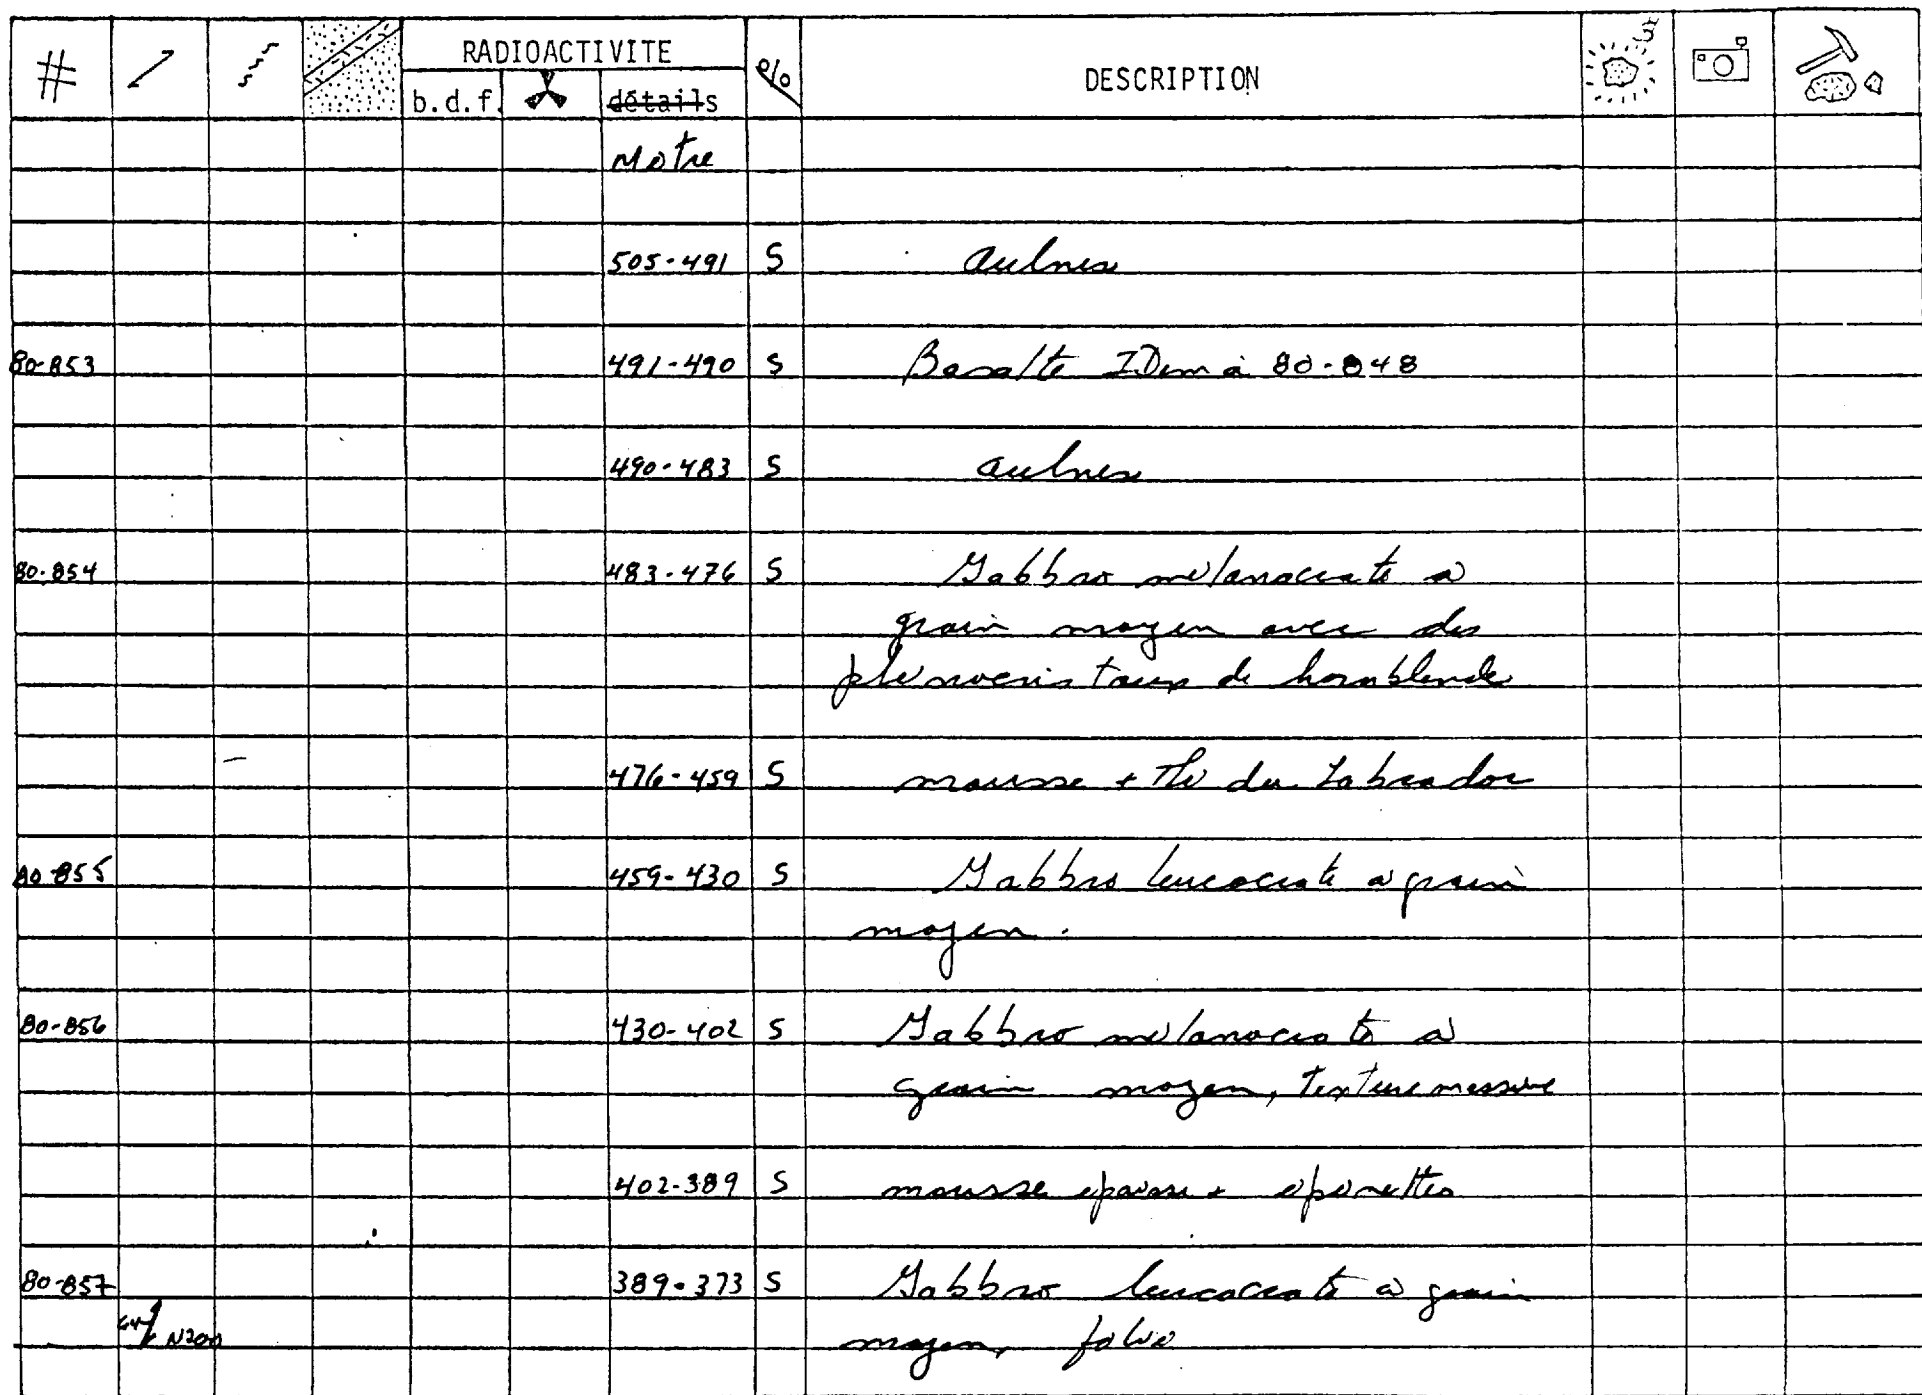 # RADIOACTIVITE % DESCRIPTION
b.d.f. détails
Mètre
505-491 S Aulnes
80-853 491-490 S Basalte IDem à 80-848
490-483 S Aulnes
80-854 483-476 S Gabbro mélanocrate à
grain moyen avec des
phénocristaux de hornblende
476-459 S mousse + Thé du Labrador
80-855 459-430 S Gabbro leucocrate à grain
moyen.
80-856 430-402 S Gabbro mélanocrate à
grain moyen, texture massive
402-389 S mousse épaisse + épinettes
80-857 389-373 S Gabbro leucocrate à grain
N200 moyen, folié